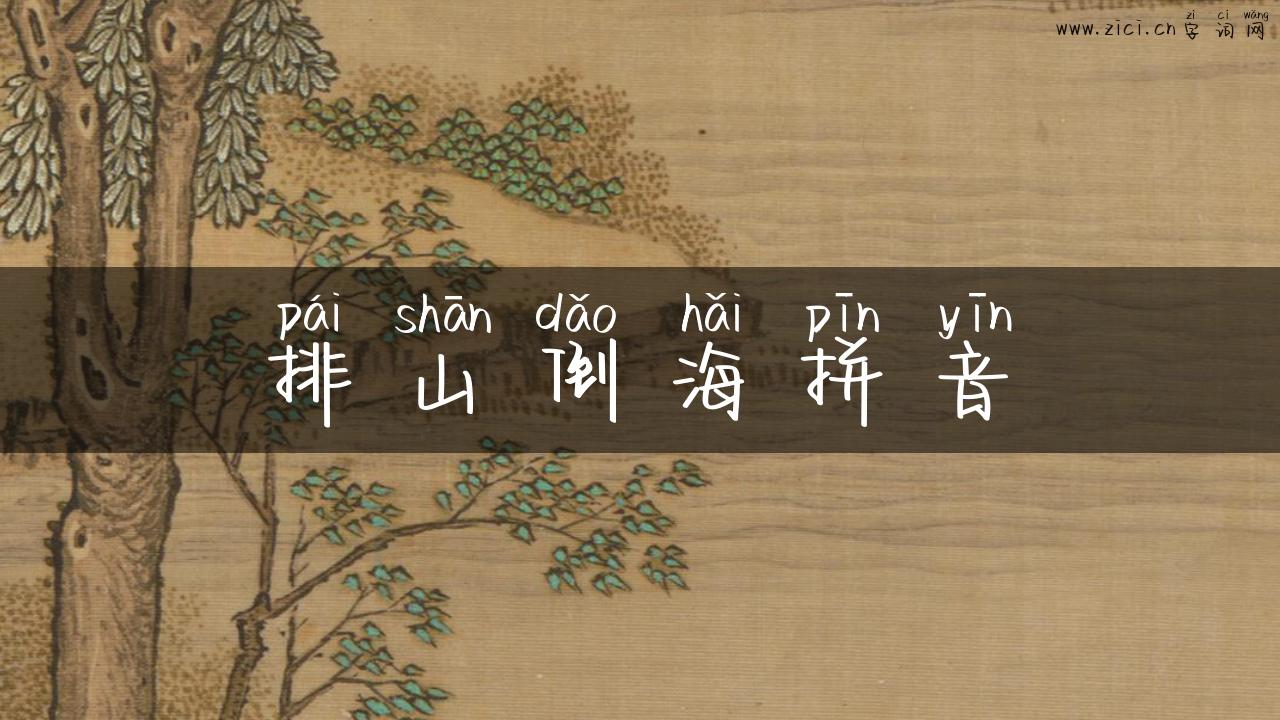 zì cí wǎng
www.zici.cn 字词网
pái shān dǎo hǎi pīn yīn
排山倒海拼音